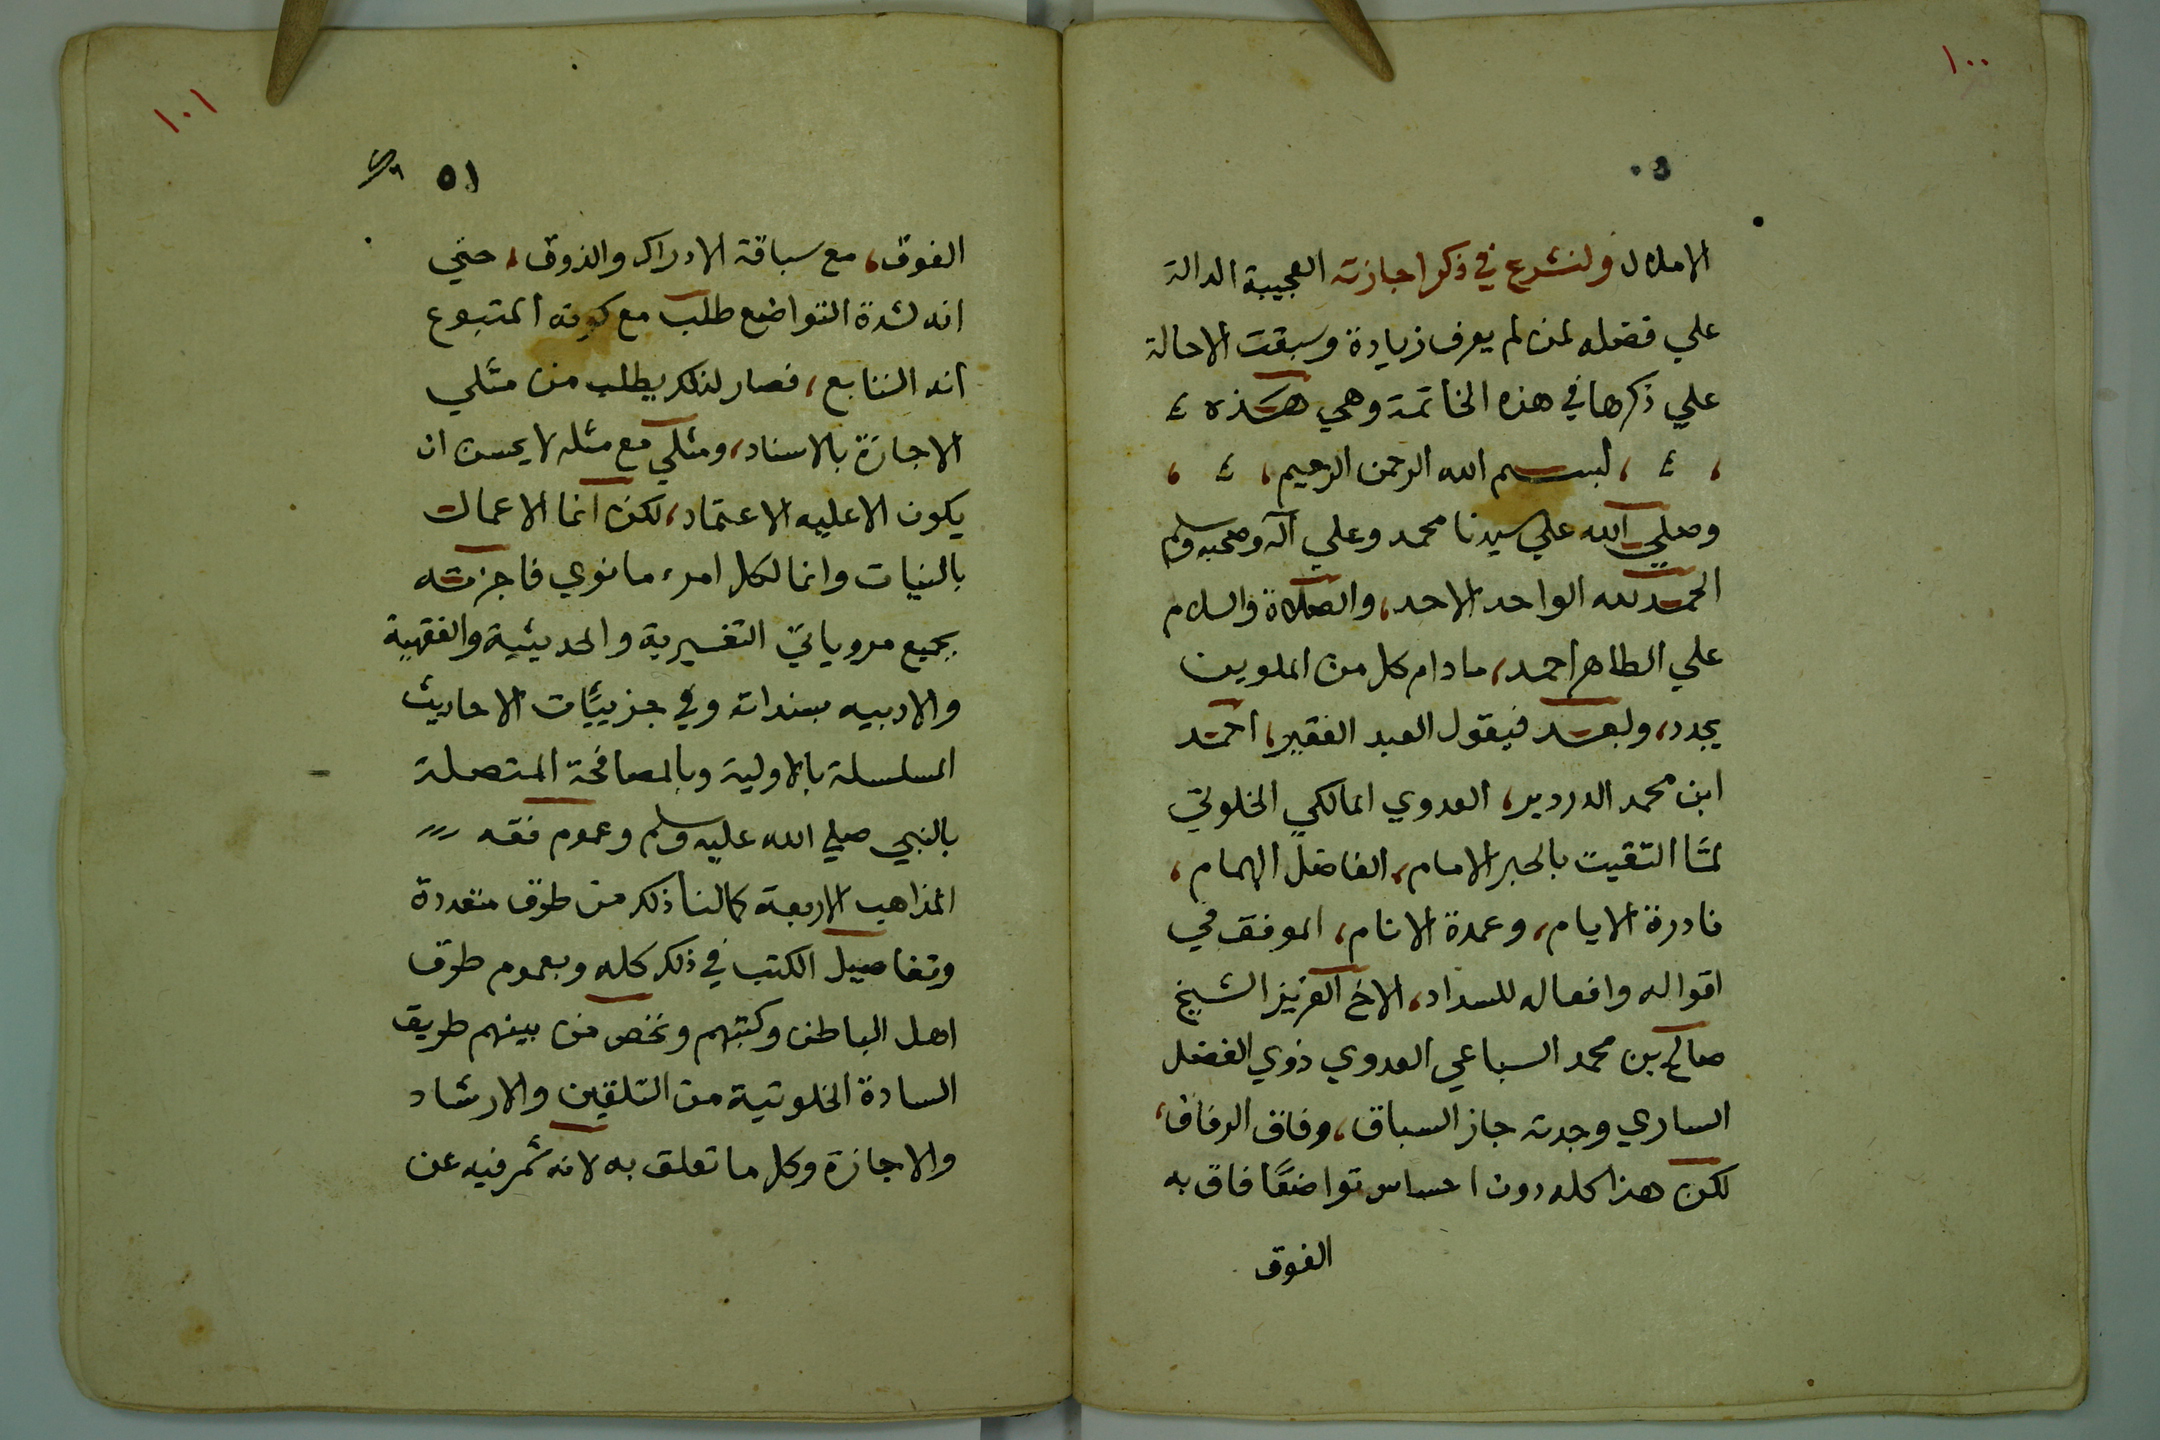 ١٠٠
٥٠
الاملال ولنشرع في ذكر اجازته العجيبة الدالة
علي فضله لمن لم يعرف زيادة وسبقت الاحالة
علي ذكرها في هذه الخاتمة وهي هذه
بسم الله الرحمن الرحيم،
وصلي الله علي سيدنا محمد وعلي آله وصحبه وسلم
الحمد لله الواحد الاحد، والصلاة والسلام
علي الطاهر احمد، ما دام كل من الملوين
يجدد، وبعد فيقول العبد الفقير، احمد
ابن محمد الدردير، العدوي المالكي الخلوتي
لما التقيت بالحبر الامام، الفاضل الهمام،
نادرة الايام، وعمدة الانام، الموفق في
اقواله وافعاله للسداد، الاخ العزيز الشيخ
صالح بن محمد السباعي العدوي ذوي الفضل
الساري وجدته جاز السباق، وفاق الرفاق،
لكن هذا كله دون احساس تواضعًا فاق به
الفوق
١٠١
٥١
الفوق، مع سباقة الادراك والذوق، حتي
انه لشدة التواضع طلب مع كونه المتبوع
انه التابع، فصار لذلك يطلب من مثلي
الاجازة بالاسناد، ومثلي مع مثله لا يحسن ان
يكون الا عليه الاعتماد، لكن انما الاعمال
بالنيات وانما لكل امرء ما نوي فاجزته
بجميع مروياتي التفسيرية والحديثية والفقهية
والادبيه بسنداته وفي جزييًات الاحاديث
المسلسلة بالاولية وبالمصافحة المتصلة
بالنبي صلي الله عليه وسلم وعموم فقه
المذاهب الاربعة كما لنا ذلك من طرق متعددة
وتفاصيل الكتب في ذلك كله وبعموم طرق
اهل الباطن وكتبهم ونخص من بينهم طريق
السادة الخلوتية من التلقين والارشاد
والاجازة وكل ما تعلق به لانه شمر فيه عن